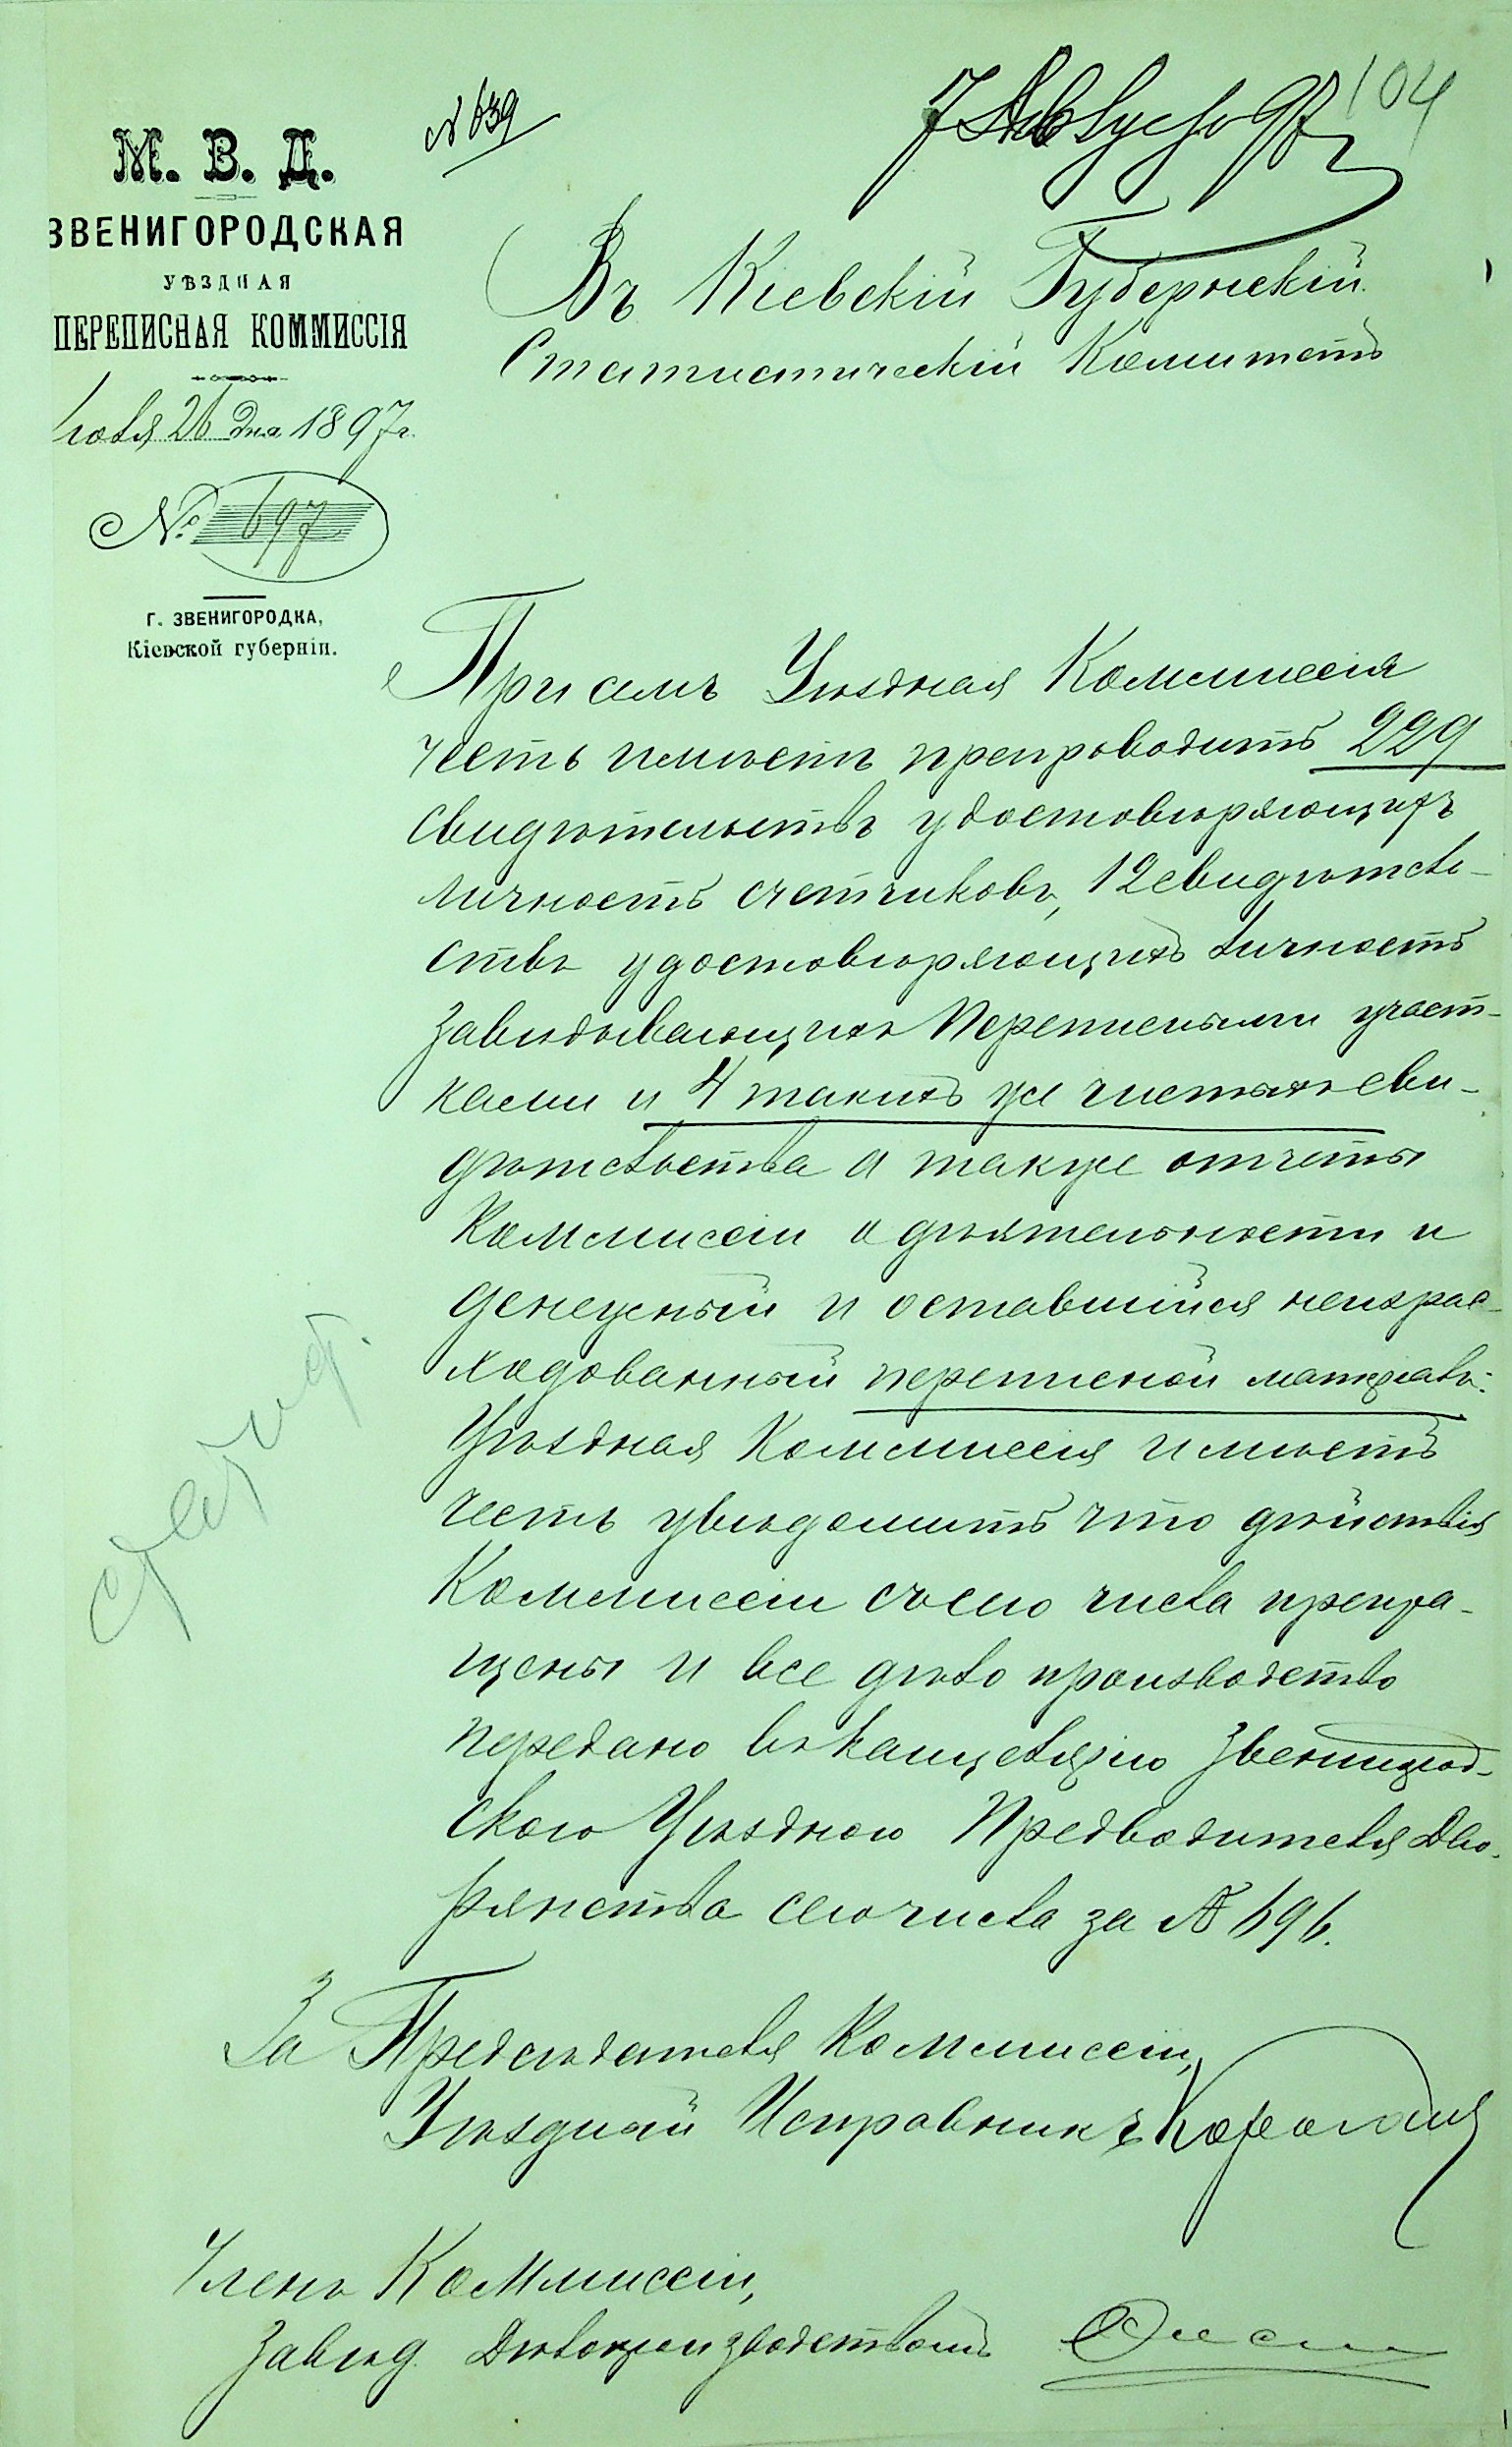 № 639
7 Августа 97
104
М. В. Д.
ЗВЕНИГОРОДСКАЯ
УѢЗДНАЯ
ПЕРЕПИСНАЯ КОММИССІЯ
Іюля 26 дня 1897 г.
№ 697
Г. ЗВЕНИГОРОДКА,
Кіевской губерніи.
Въ Кіевскій Губернскій
Статистическій Комитетъ
При семъ Уѣздная Коммиссія
честь имѣетъ препроводить 229
свидѣтельствъ удостовѣряющихъ
личность счетчиковъ, 12 свидѣтель-
ствъ удостовѣряющихъ личность
Завѣдывающихъ Переписными участ-
ками и 4 такихъ же чистыхъ сви-
дѣтельства а также отчеты
Коммиссіи о дѣятельности и
денежный и оставшійся неизрас-
ходованный переписной матеріалъ.
Уѣздная Коммиссія имѣетъ
честь увѣдомить что дѣйствія
Коммиссіи съ сего числа прекра-
щены и все дѣло производство
передано въ канцелярію Звенигород-
скаго Уѣзднаго Предводителя Дво-
рянства сего числа за № 696.
За Предсѣдателя Коммиссіи,
Уѣздный Исправникъ
Членъ Коммиссіи,
Завѣд. Дѣлопроизводствомъ